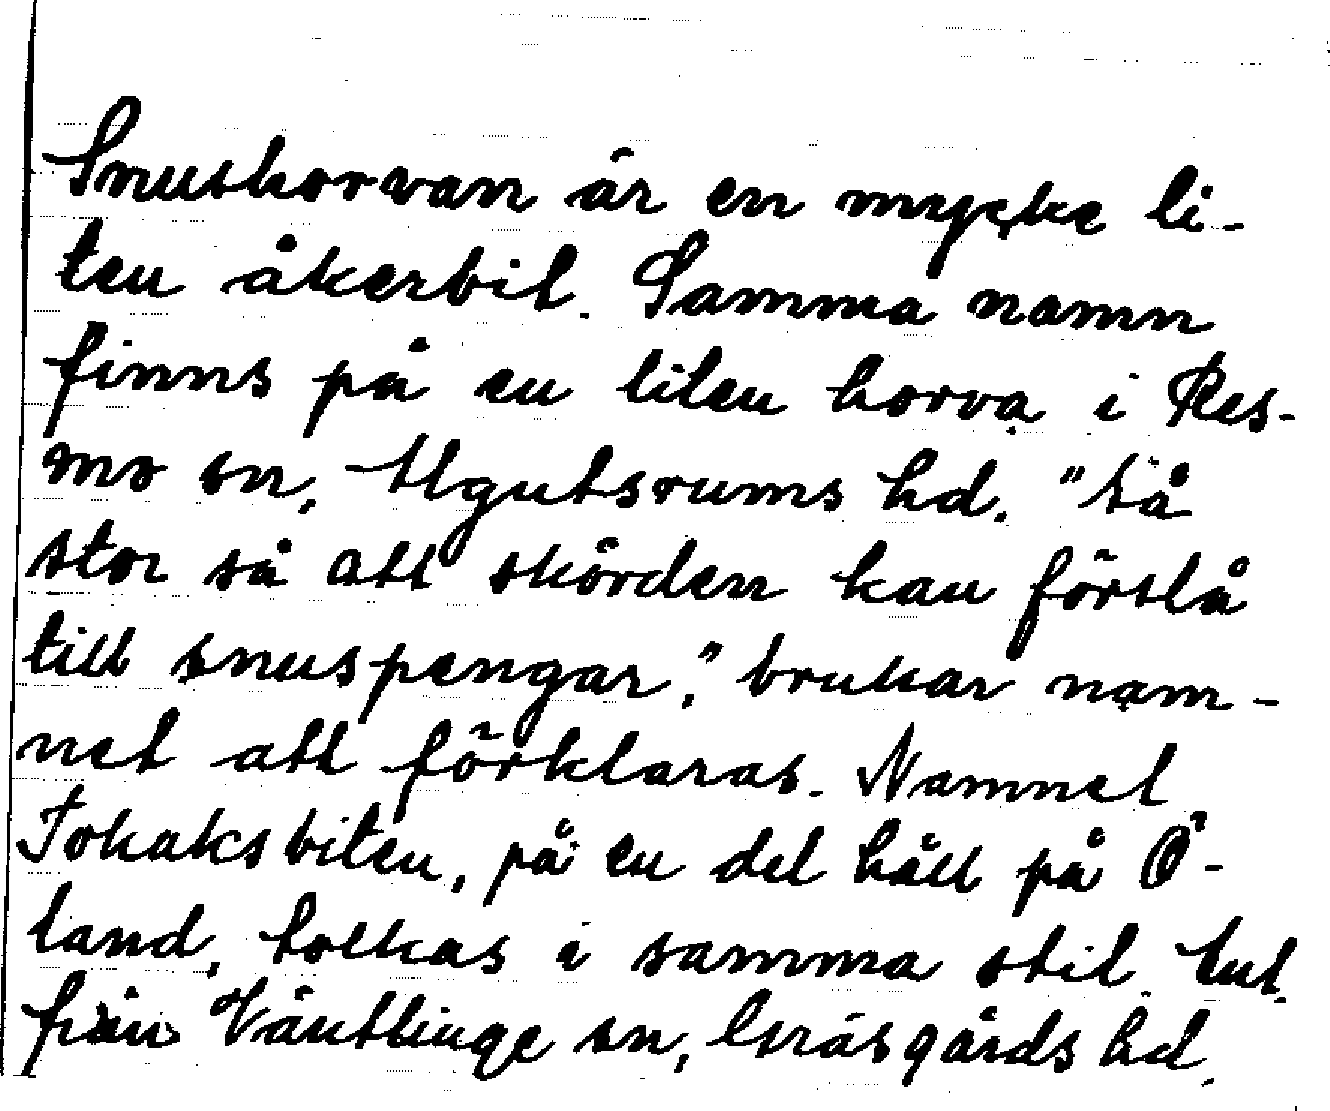 Snushorvan är en mycke li-
ten åkerbit. Samma namn
finns på en liten horva i Res-
mo sn, Algutsrums hd. "Så
stor så att skörden kan förslå
till snuspengar," brukar nam-
net att förklaras. Namnet
Tokaksbiten, på en del håll på Ö-
land, tolkas i samma stil.
från Ventlinge sn, Gräsgårds hd.